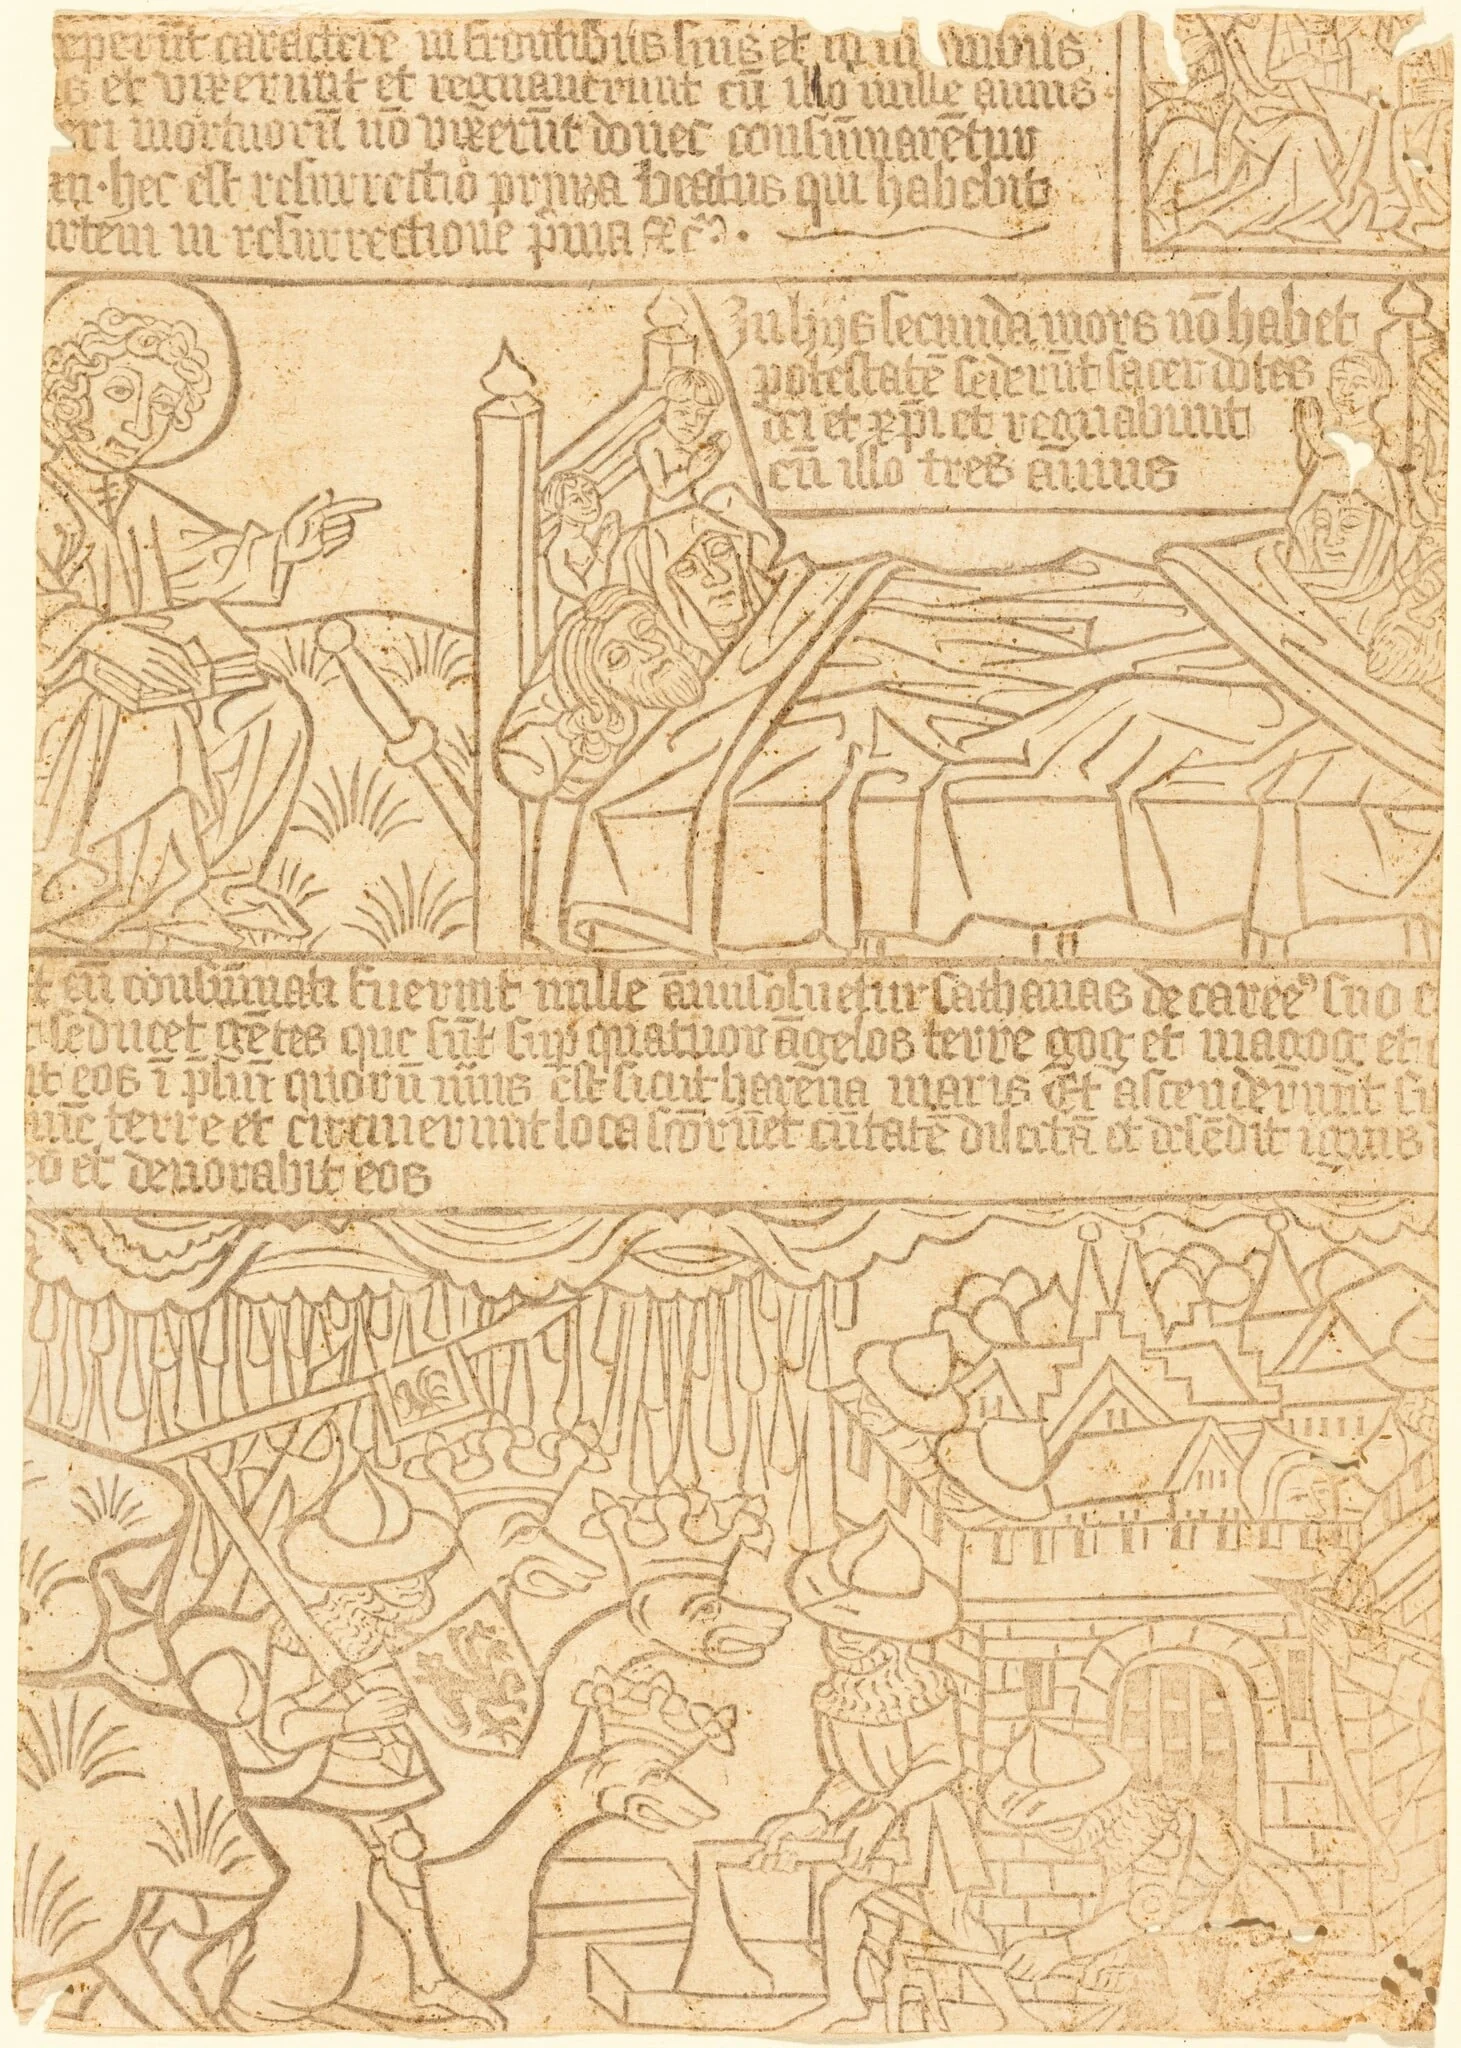 eperūt caractere in frontibus suis et in m nibus
s et vixerunt et regnauerunt cū illo mille annis
eri mortuorū nō vixerūt donec consūmarētur
an · hec est resurrectio prima beatus qui habebit
artem in resurrectione p̄ma &c̄ ·
In hijs secunda mors nō habet
potestatē sederūt sacerdotes
dei et xp̄i et regnabunt
cū illo tres ānnis
t cū consūmati fuerint mille ānni soluetur sathanas de carcē suo e
seducet gētes que sūt sup quatuor āgelos terre gog et magog et
it eos ī p̄liū quorū nūus ēst sicut harena maris Et ascenderunt
terre et circuierunt loca scōrū et cūitatē dilcītā et dēsēdit ignis
eo et deuorabit eos